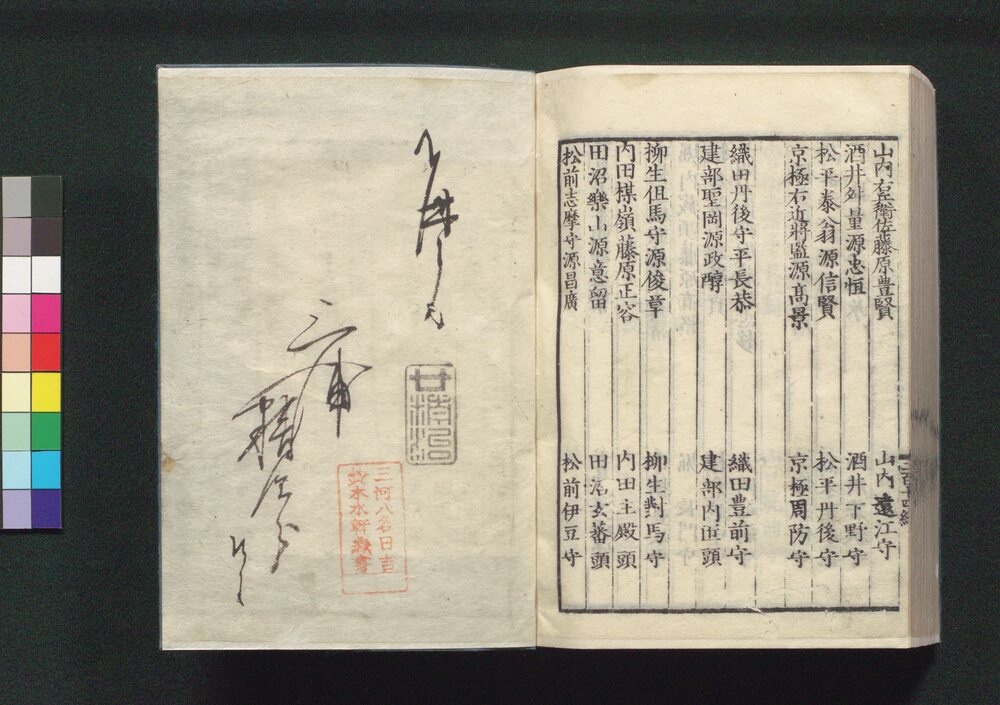 山内右衛佐藤原豊賢
山内遠江守
酒井舛量源忠恒
酒井下野守
松平泰翁源信賢
松平丹後守
京極右近將監源高景
京極周防守
織田丹後守平長恭
織田豊前守
建部聖岡源政醇
建部内匠頭
柳生但馬守源俊章
柳生對馬守
内田楳嶺藤原正容
内田主殿頭
田沼樂山源意留
田沼玄蕃頭
松前志摩守源昌廣
松前伊豆守
三河八名日吉
鈴木水軒蔵書